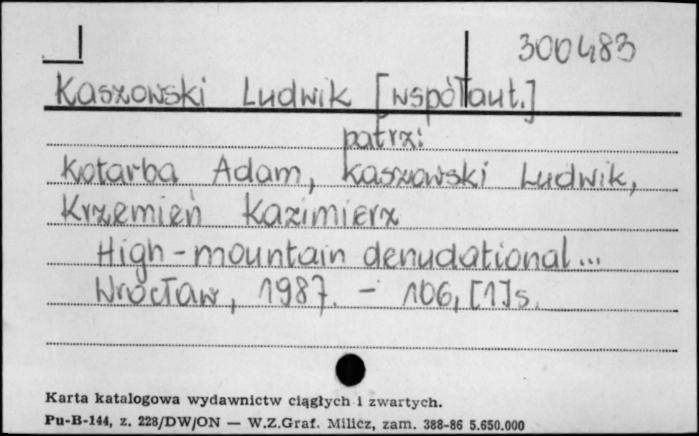 300483
Kaszowski Ludwik [współaut.]
patrz:
Kotarba Adam, Kaszowski Ludwik,
Krzemień Kazimierz
High-mountain denudational...
Wrocław, 1987. - 106, [1] s.
Karta katalogowa wydawnictw ciągłych i zwartych.
Pu-B-144, z. 228/DW/ON — W.Z.Graf. Milicz, zam. 388-86 5.650.000